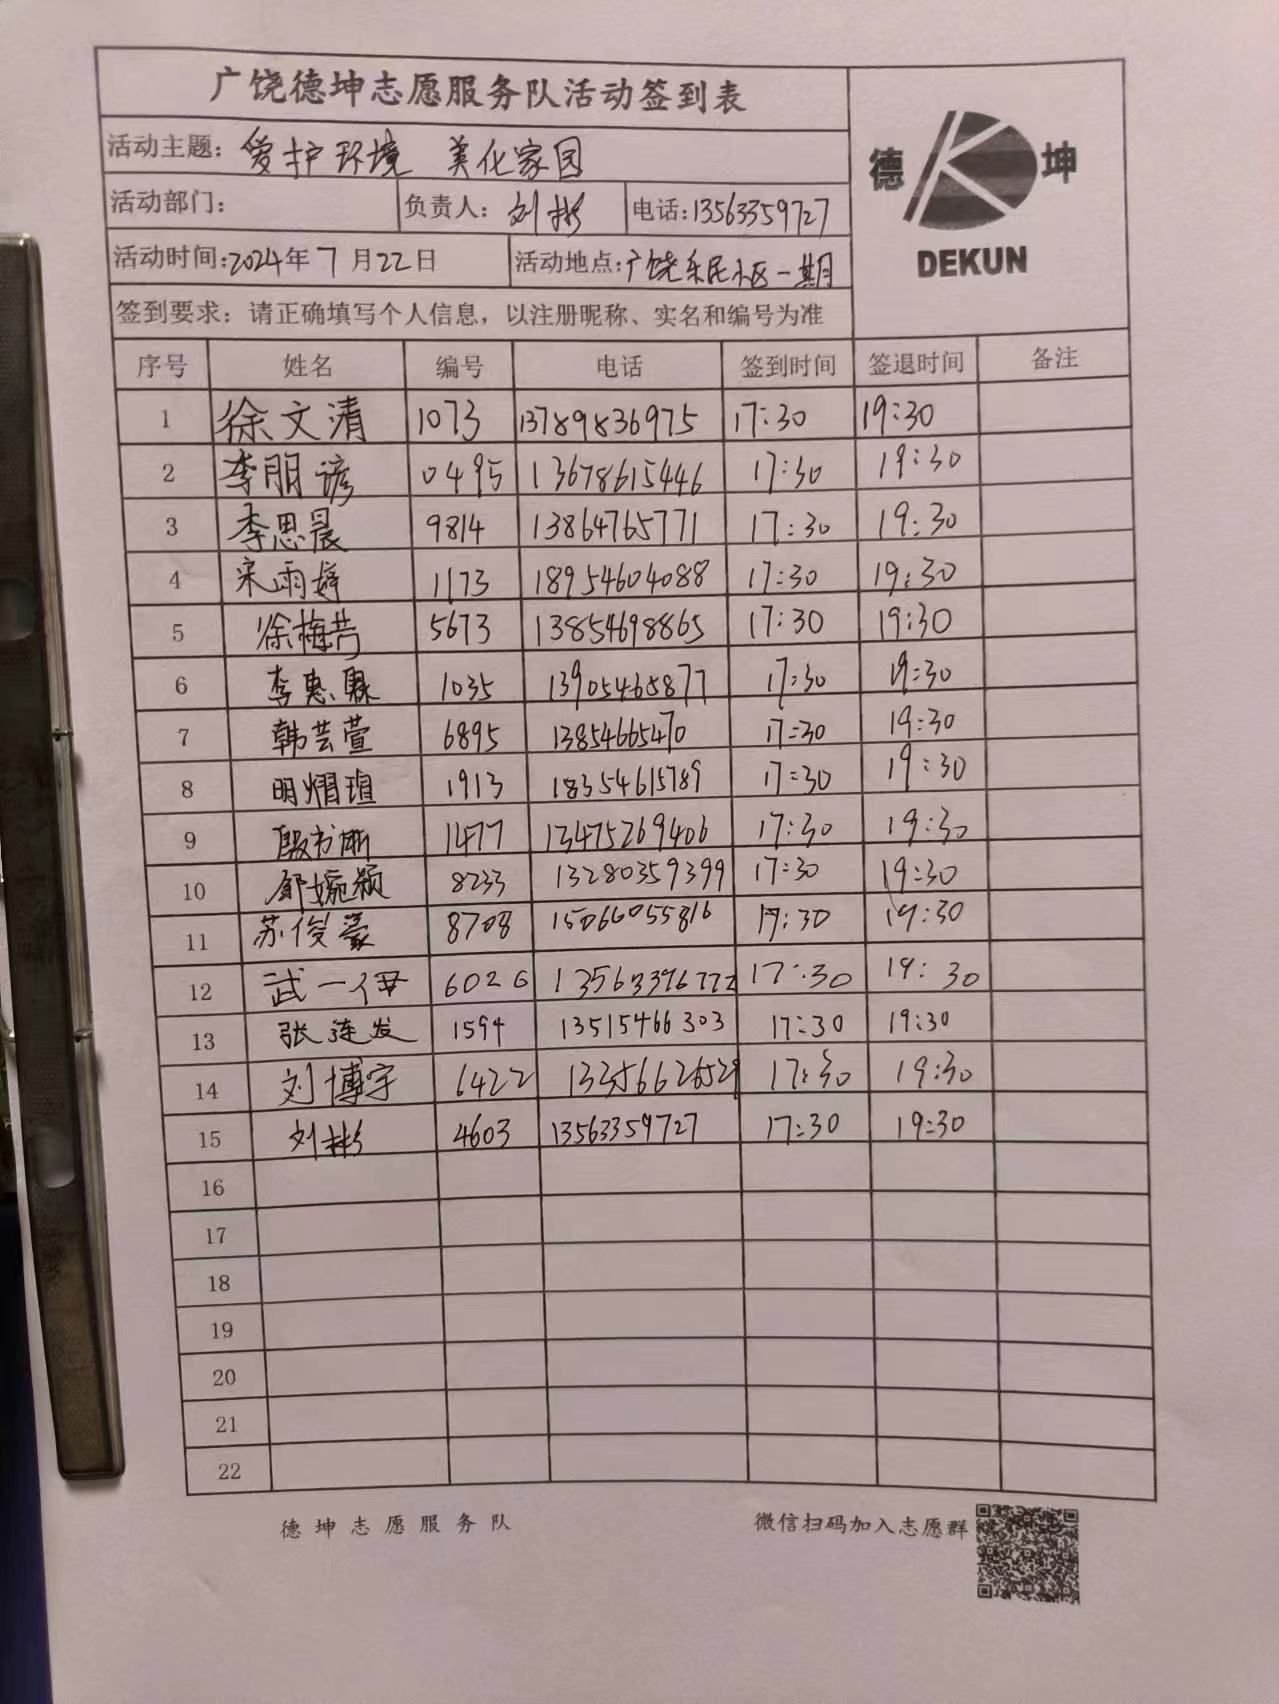 广饶德坤志愿服务队活动签到表
德 坤
DEKUN
活动主题：爱护环境 美化家园
活动部门： 负责人：刘彬 电话：13563359727
活动时间：2024年7月22日 活动地点：广饶乐民小区一期
签到要求：请正确填写个人信息，以注册昵称、实名和编号为准
序号 姓名 编号 电话 签到时间 签退时间 备注
1 徐文清 1073 13789836975 17:30 19:30
2 李朋谚 0495 13678615446 17:30 19:30
3 李思晨 9814 13864765771 17:30 19:30
4 宋雨婷 1173 18954604088 17:30 19:30
5 徐梅芳 5673 13854698865 17:30 19:30
6 李惠 1035 13905468877 17:30 19:30
7 韩芸萱 6895 13854665470 17:30 19:30
8 明熠瑄 1913 18354615789 17:30 19:30
9 殷书 1477 13475269406 17:30 19:30
10 婉颖 8233 13280359399 17:30 19:30
11 苏俊豪 8708 15066055816 17:30 19:30
12 武一 6026 17:30 19:30
13 张连发 1594 13515466303 17:30 19:30
14 刘博宇 6422 13356626529 17:30 19:30
15 刘彬 4603 13563359727 17:30 19:30
16
17
18
19
20
21
22
德坤志愿服务队 微信扫码加入志愿群